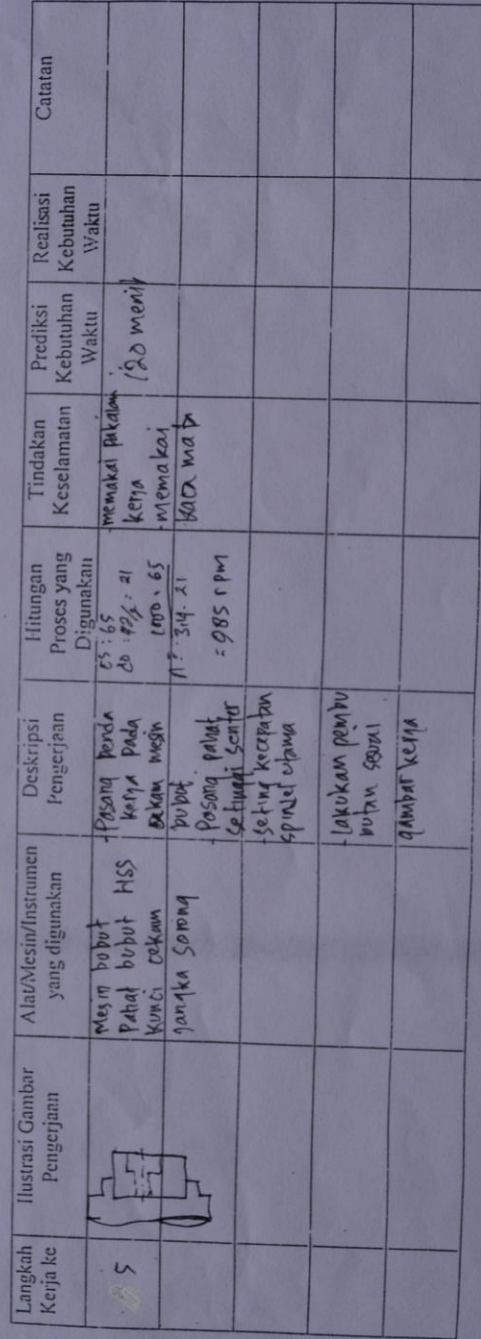 Langkah Kerja ke
Ilustrasi Gambar Pengerjaan
Alat/Mesin/Instrumen yang digunakan
Deskripsi Pengerjaan
Hitungan Proses yang Digunakan
Tindakan Keselamatan
Prediksi Kebutuhan Waktu
Realisasi Kebutuhan Waktu
Catatan
5
Mesin bubut
Pahat bubut HSS
Kunci cekam
Jangka sorong
- Pasang benda
kerja pada
cekam mesin
bubut
- Pasang pahat
setinggi senter
- seting kecepatan
spindel utama
- Lakukan pembu
butan sesuai
gambar kerja
cs : 65
do : 42/2 = 21
1000 . 65
n = 314 . 21
= 985 rpm
- memakai pakaian
kerja
- memakai
kaca mata
120 menit